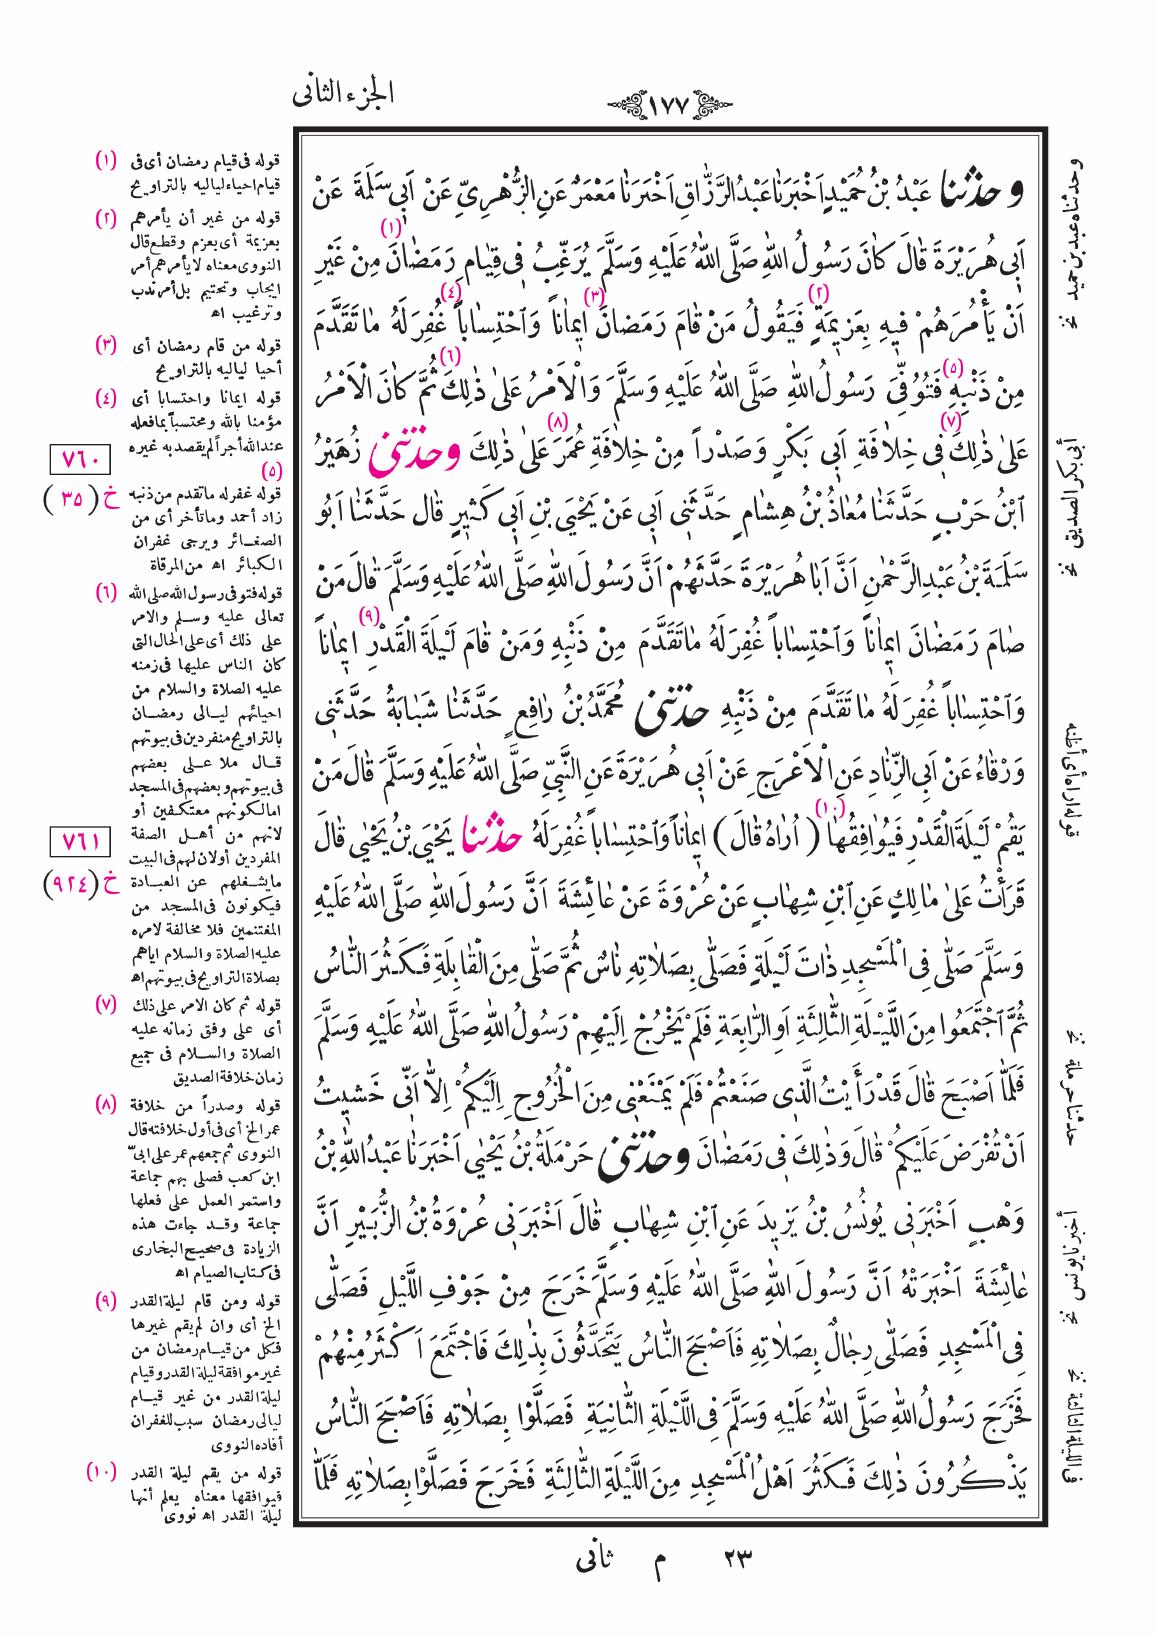 ١٧٧
الجزء الثانى
و حَدَّثَنَا عَبْدُ بْنُ حُمَيْدٍ اَخْبَرَنَا عَبْدُ الرَّزَّاقِ اَخْبَرَنَا مَعْمَرٌ عَنِ الزُّهْرِىِّ عَنْ اَبِى سَلَمَةَ عَنْ
اَبِى هُرَيْرَةَ قَالَ كَانَ رَسُولُ اللّٰهِ صَلَّى اللّٰهُ عَلَيْهِ وَسَلَّمَ يُرَغِّبُ فِى قِيَامِ رَمَضَانَ (١) مِنْ غَيْرِ
اَنْ يَأْمُرَهُمْ فِيهِ بِعَزِيمَةٍ (٢) فَيَقُولُ مَنْ قَامَ رَمَضَانَ (٣) اِيمَاناً وَاحْتِسَاباً (٤) غُفِرَلَهُ مَا تَقَدَّمَ
مِنْ ذَنْبِهِ (٥) فَتُوُفِّىَ رَسُولُ اللّٰهِ صَلَّى اللّٰهُ عَلَيْهِ وَسَلَّمَ وَالْاَمْرُ عَلىٰ ذٰلِكَ (٦) ثُمَّ كَانَ الْاَمْرُ
عَلىٰ ذٰلِكَ (٧) فِى خِلَافَةِ اَبِى بَكْرٍ وَصَدْراً مِنْ خِلَافَةِ عُمَرَ (٨) عَلىٰ ذٰلِكَ وحَدَّثَنِى زُهَيْرُ
ابْنُ حَرْبٍ حَدَّثَنَا مُعَاذُ بْنُ هِشَامٍ حَدَّثَنِى اَبِى عَنْ يَحْيَى بْنِ اَبِى كَثِيرٍ قَالَ حَدَّثَنَا اَبُو
سَلَمَةَ بْنُ عَبْدِ الرَّحْمٰنِ اَنَّ اَبَا هُرَيْرَةَ حَدَّثَهُمْ اَنَّ رَسُولَ اللّٰهِ صَلَّى اللّٰهُ عَلَيْهِ وَسَلَّمَ قَالَ مَنْ
صَامَ رَمَضَانَ اِيمَاناً وَاحْتِسَاباً غُفِرَلَهُ مَا تَقَدَّمَ مِنْ ذَنْبِهِ وَمَنْ قَامَ لَيْلَةَ الْقَدْرِ (٩) اِيمَاناً
وَاحْتِسَاباً غُفِرَلَهُ مَا تَقَدَّمَ مِنْ ذَنْبِهِ حَدَّثَنِى مُحَمَّدُ بْنُ رَافِعٍ حَدَّثَنَا شَبَابَةُ حَدَّثَنِى
وَرْقَاءُ عَنْ اَبِى الزِّنَادِ عَنِ الْاَعْرَجِ عَنْ اَبِى هُرَيْرَةَ عَنِ النَّبِىِّ صَلَّى اللّٰهُ عَلَيْهِ وَسَلَّمَ قَالَ مَنْ
يَقُمْ لَيْلَةَ الْقَدْرِ فَيُوَافِقُهَا (١٠) ( اُرَاهُ قَالَ ) اِيمَاناً وَاحْتِسَاباً غُفِرَلَهُ حَدَّثَنَا يَحْيَى بْنُ يَحْيىٰ قَالَ
قَرَأْتُ عَلىٰ مَالِكٍ عَنِ ابْنِ شِهَابٍ عَنْ عُرْوَةَ عَنْ عَائِشَةَ اَنَّ رَسُولَ اللّٰهِ صَلَّى اللّٰهُ عَلَيْهِ
وَسَلَّمَ صَلَّى فِى الْمَسْجِدِ ذَاتَ لَيْلَةٍ فَصَلَّى بِصَلَاتِهِ نَاسٌ ثُمَّ صَلَّى مِنَ الْقَابِلَةِ فَكَثُرَ النَّاسُ
ثُمَّ اجْتَمَعُوا مِنَ اللَّيْلَةِ الثَّالِثَةِ اَوِ الرَّابِعَةِ فَلَمْ يَخْرُجْ اِلَيْهِمْ رَسُولُ اللّٰهِ صَلَّى اللّٰهُ عَلَيْهِ وَسَلَّمَ
فَلَمَّا اَصْبَحَ قَالَ قَدْ رَأَيْتُ الَّذِى صَنَعْتُمْ فَلَمْ يَمْنَعْنِى مِنَ الْخُرُوجِ اِلَيْكُمْ اِلَّا اَنِّى خَشِيتُ
اَنْ تُفْرَضَ عَلَيْكُمْ قَالَ وَذٰلِكَ فِى رَمَضَانَ وحَدَّثَنِى حَرْمَلَةُ بْنُ يَحْيىٰ اَخْبَرَنَا عَبْدُ اللّٰهِ بْنُ
وَهْبٍ اَخْبَرَنِى يُونُسُ بْنُ يَزِيدَ عَنِ ابْنِ شِهَابٍ قَالَ اَخْبَرَنِى عُرْوَةُ بْنُ الزُّبَيْرِ اَنَّ
عَائِشَةَ اَخْبَرَتْهُ اَنَّ رَسُولَ اللّٰهِ صَلَّى اللّٰهُ عَلَيْهِ وَسَلَّمَ خَرَجَ مِنْ جَوْفِ اللَّيْلِ فَصَلَّى
فِى الْمَسْجِدِ فَصَلَّى رِجَالٌ بِصَلَاتِهِ فَاَصْبَحَ النَّاسُ يَتَحَدَّثُونَ بِذٰلِكَ فَاجْتَمَعَ اَكْثَرُ مِنْهُمْ
فَخَرَجَ رَسُولُ اللّٰهِ صَلَّى اللّٰهُ عَلَيْهِ وَسَلَّمَ فِى اللَّيْلَةِ الثَّانِيَةِ فَصَلَّوْا بِصَلَاتِهِ فَاَصْبَحَ النَّاسُ
يَذْكُرُونَ ذٰلِكَ فَكَثُرَ اَهْلُ الْمَسْجِدِ مِنَ اللَّيْلَةِ الثَّالِثَةِ فَخَرَجَ فَصَلَّوْا بِصَلَاتِهِ فَلَمَّا
وحدثناه عبد بن حميد نخ
أبى بكر الصديق نخ
قوله اراه أى أظنه
حدثنا حرملة نخ
أخبرنا يونس نخ
فى الليلة الثالثة نخ
(١) قوله فى قيام رمضان أى فى
قيام احياء لياليه بالتراويح
(٢) قوله من غير أن يأمرهم
بعزيمة أى بعزم وقطع قال
النووى معناه لا يأمرهم أمر
ايجاب وتحتيم بل أمر ندب
وترغيب اه
(٣) قوله من قام رمضان أى
أحيا لياليه بالتراويح
(٤) قوله ايمانا واحتسابا أى
مؤمنا بالله ومحتسباً بما فعله
عند الله أجراً لم يقصد به غيره
(٥)
قوله غفر له ما تقدم من ذنبه
زاد أحمد وما تأخر أى من
الصغائر ويرجى غفران
الكبائر اه من المرقاة
(٦) قوله فتوفى رسول الله صلى الله
تعالى عليه وسلم والامر
على ذلك أى على الحال التى
كان الناس عليها فى زمنه
عليه الصلاة والسلام من
احيائهم ليالى رمضان
بالتراويح منفردين فى بيوتهم
قال ملا على بعضهم
فى بيوتهم وبعضهم فى المسجد
اما لكونهم معتكفين أو
لانهم من أهل الصفة
المفردين أو لان لهم فى البيت
ما يشغلهم عن العبادة
فيكونون فى المسجد من
المغتنمين فلا مخالفة لامره
عليه الصلاة والسلام اياهم
بصلاة التراويح فى بيوتهم اه
(٧) قوله ثم كان الامر على ذلك
أى على وفق زمانه عليه
الصلاة والسلام فى جميع
زمان خلافة الصديق
(٨) قوله وصدراً من خلافة
عمر الخ أى فى أول خلافته قال
النووى ثم جمعهم عمر على ابىّ
ابن كعب فصلى بهم جماعة
واستمر العمل على فعلها
جماعة وقد جاءت هذه
الزيادة فى صحيح البخارى
فى كتاب الصيام اه
(٩) قوله ومن قام ليلة القدر
الخ أى وان لم يقم غيرها
فكل من قيام رمضان من
غير موافقة ليلة القدر وقيام
ليلة القدر من غير قيام
ليالى رمضان سبب للغفران
أفاده النووى
(١٠) قوله من يقم ليلة القدر
فيوافقها معناه يعلم أنها
ليلة القدر اه نووى
٧٦٠
خ (٣٥)
٧٦١
خ (٩٢٤)
٢٣ م ثانى